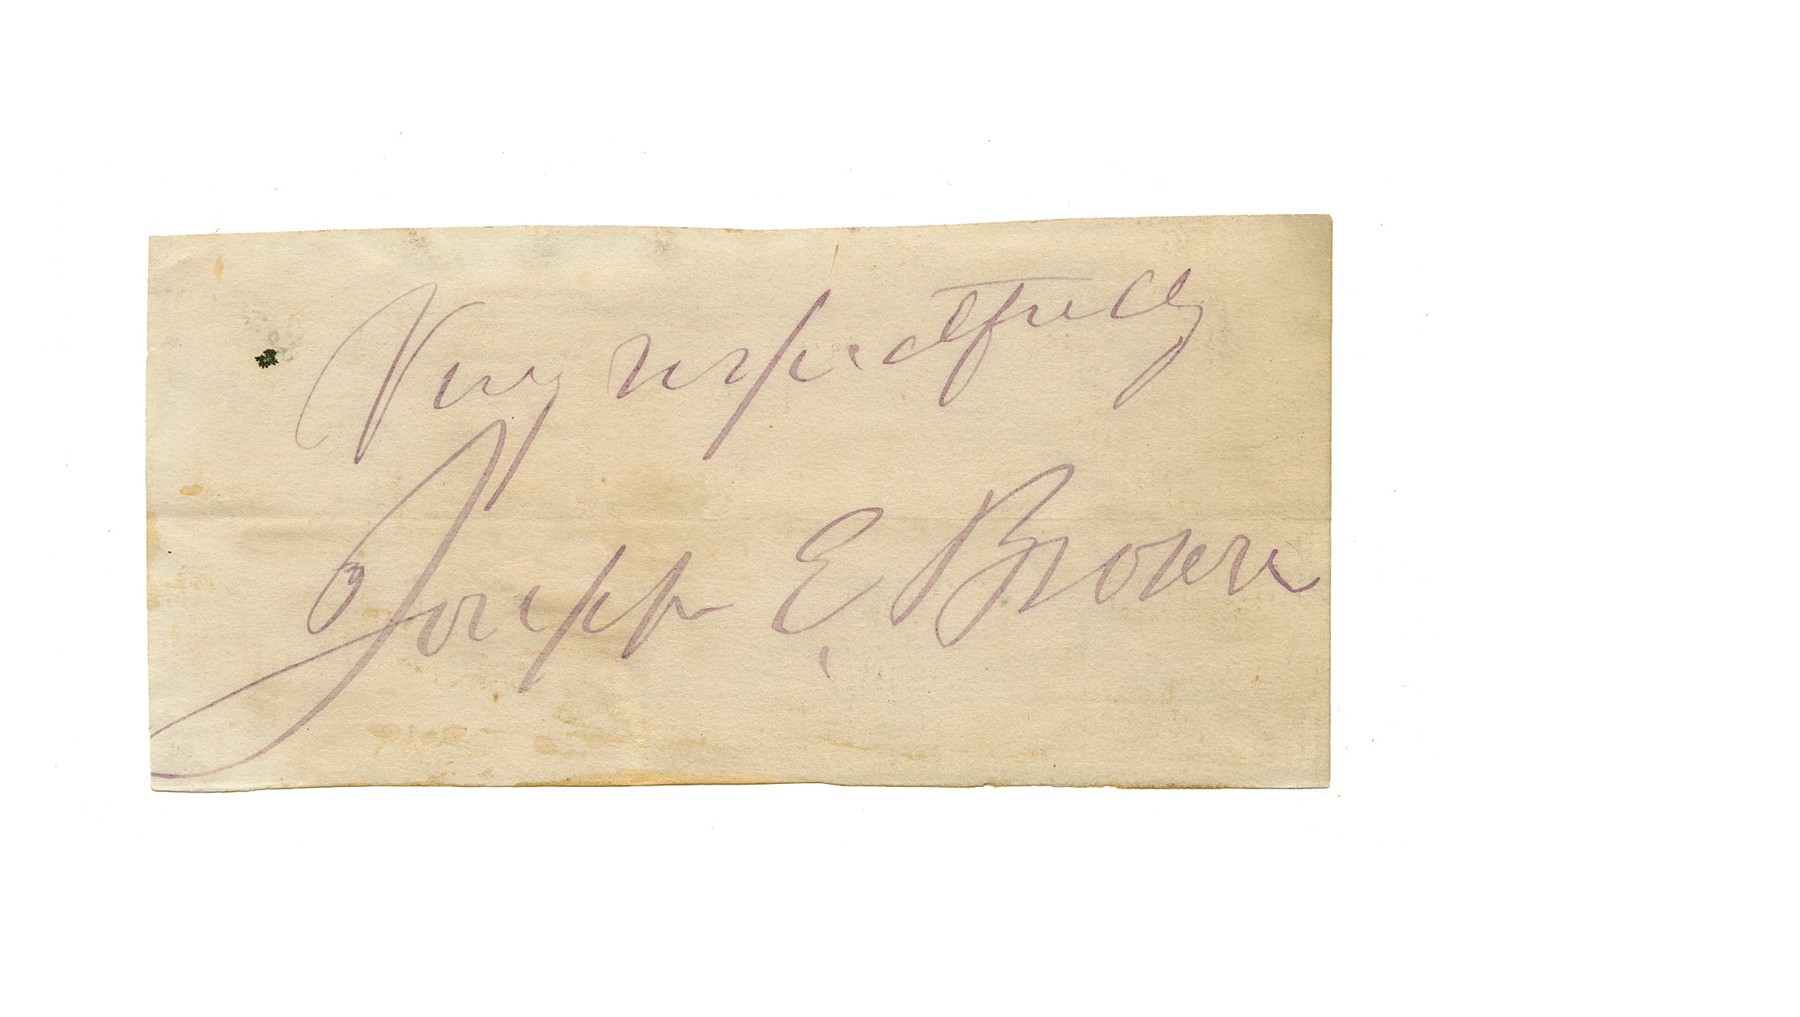 Very respectfully
Joseph E. Brown